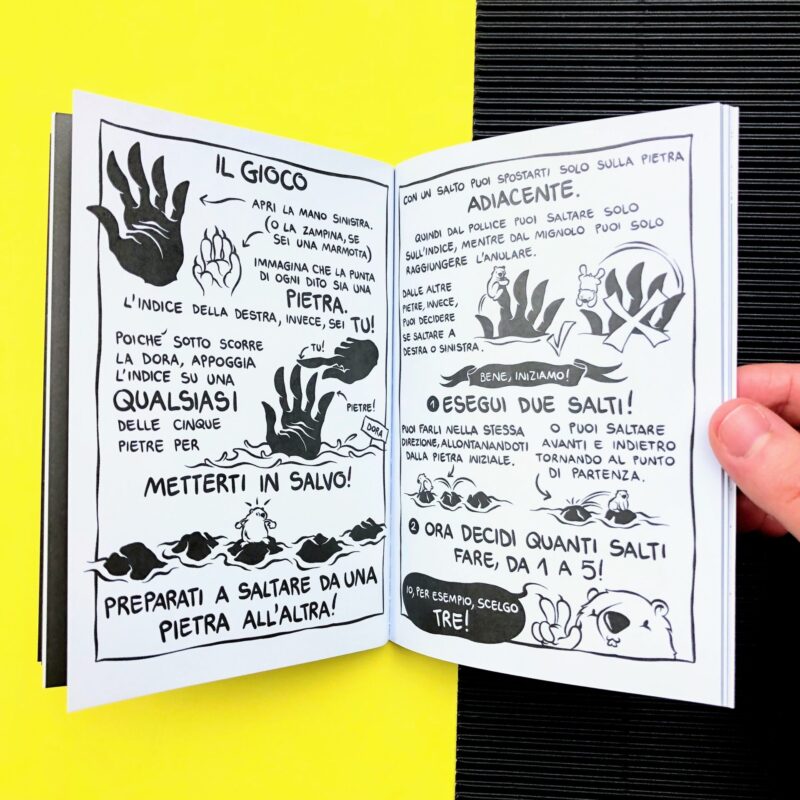 IL GIOCO
APRI LA MANO SINISTRA.
(O LA ZAMPINA, SE
SEI UNA MARMOTTA)
IMMAGINA CHE LA PUNTA
DI OGNI DITO SIA UNA
PIETRA.
L'INDICE DELLA DESTRA, INVECE, SEI TU!
POICHÉ SOTTO SCORRE
LA DORA, APPOGGIA
L'INDICE SU UNA
QUALSIASI
DELLE CINQUE
PIETRE PER
TU!
PIETRE!
DORA
METTERTI IN SALVO!
PREPARATI A SALTARE DA UNA
PIETRA ALL'ALTRA!
CON UN SALTO PUOI SPOSTARTI SOLO SULLA PIETRA
ADIACENTE.
QUINDI DAL POLLICE PUOI SALTARE SOLO
SULL'INDICE, MENTRE DAL MIGNOLO PUOI SOLO
RAGGIUNGERE L'ANULARE.
DALLE ALTRE
PIETRE, INVECE,
PUOI DECIDERE
SE SALTARE A
DESTRA O SINISTRA.
BENE, INIZIAMO!
1 ESEGUI DUE SALTI!
PUOI FARLI NELLA STESSA
DIREZIONE, ALLONTANANDOTI
DALLA PIETRA INIZIALE.
O PUOI SALTARE
AVANTI E INDIETRO
TORNANDO AL PUNTO
DI PARTENZA.
2 ORA DECIDI QUANTI SALTI
FARE, DA 1 A 5!
IO, PER ESEMPIO, SCELGO
TRE!